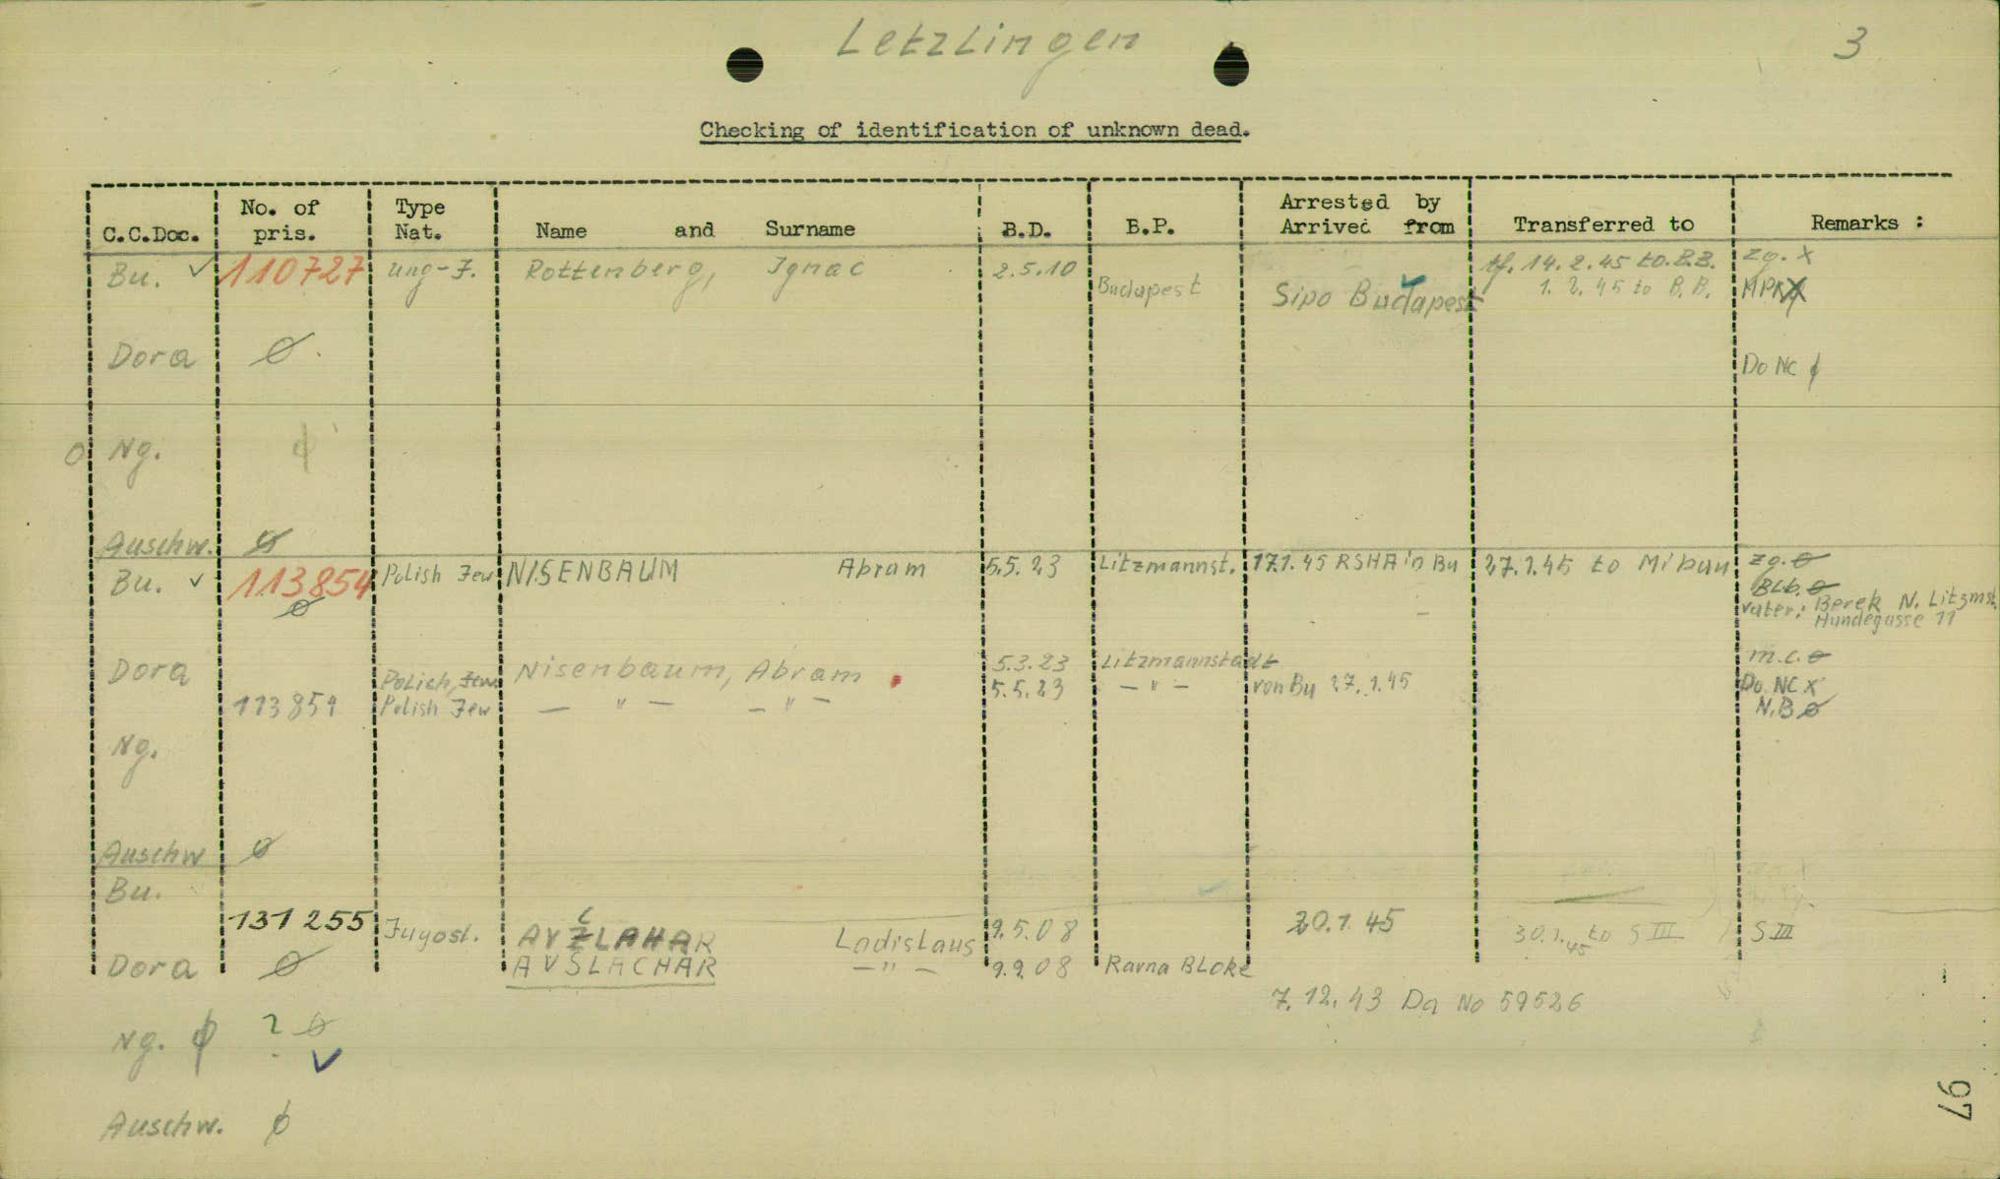 Letzlingen
3
Checking of identification of unknown dead.
C.C.Doc. No. of pris. Type Nat. Name and Surname B.D. B.P. Arrested by Arrived from Transferred to Remarks :
Bu. ✓ 110727 ung-J. Rottenberg, Ignac 2.5.10 Budapest Sipo Budapest tf. 14.2.45 to B.B. zg. X
1. 2. 45 to B.B.
Dora Ø Do NC ϕ
O Ng. ϕ
Auschw. Ø
Bu. ✓ 113854 Polish Jew NISENBAUM Abram 5.5.23 Litzmannst. 17.1.45 RSHA in Bu 27.1.45 to Mibau zg. Ø
Ø Blb. Ø
Vater: Berek N. Litzmst.
Hundegasse 11
Dora Polish Jew Nisenbaum, Abram 5.3.23 Litzmannstadt m.c. Ø
113854 Polish Jew — " — — " — 5.5.23 — " — von Bu 27.1.45 Do NC X
N.B Ø
Ng.
Auschw Ø
Bu.
131255 Jugosl. AVČLAHAR Ladislaus 9.5.08 20.1.45 30.1.45 to S III S III
Dora Ø AVSLACHAR — " — 9.9.08 Ravna Bloke
7.12.43 Da No 59526
Ng. ϕ ? Ø
✓
Auschw. ϕ
97